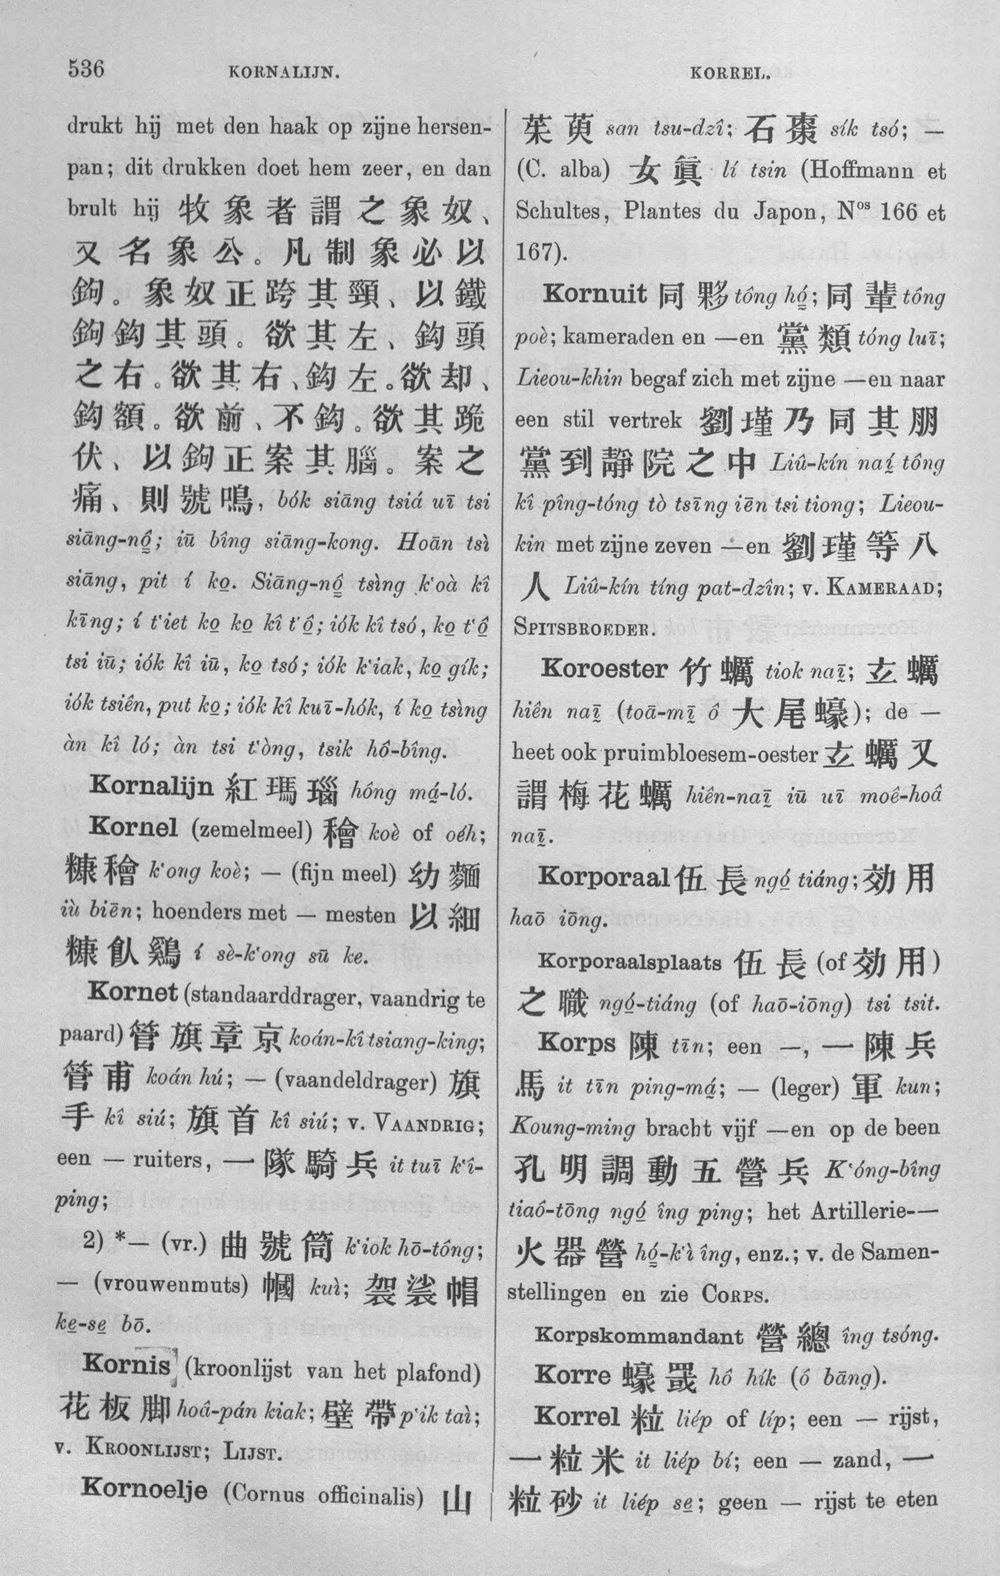 536
KORNALIJN.
KORREL.
drukt hij met den haak op zijne hersen-
pan; dit drukken doet hem zeer, en dan
brult hij 牧象者謂之象奴、
又名象公。凡制象必以
鉤。象奴正跨其頸、以鐵
鉤鉤其頭。欲其左、鉤頭
之右。欲其右、鉤左。欲却、
鉤額。欲前、不鉤。欲其跪
伏、以鉤正案其腦。案之
痛、則號鳴, bók siāng tsiá uī tsi
siāng-nô͘; iū bîng siāng-kong. Hoān tsì
siāng, pit í ko̤. Siāng-nô͘ tsìng k‘oà kî
kīng; í t‘iet ko̤ ko̤ kî t‘ô̤; iók kî tsó, ko̤ t‘ô̤
tsi iū; iók kî iū, ko̤ tsó; iók k‘iak, ko̤ gík;
iók tsiên, put ko̤; iók kî kuī-hók, í ko̤ tsìng
àn kî ló; àn tsi t‘òng, tsik hô-bîng.
Kornalijn 紅瑪瑙 hông má̤-ló.
Kornel (zemelmeel) 䅳 koè of oéh;
糠䅳 k‘ong koè; — (fijn meel) 幼麵
iù biēn; hoenders met — mesten 以細
糠飤鷄 í sè-k‘ong sū ke.
Kornet (standaarddrager, vaandrig te
paard) 管旗章京 koán-kî tsiang-king;
管甫 koán hú; — (vaandeldrager) 旗
手 kî siú; 旗首 kî siú; v. VAANDRIG;
een — ruiters, 一隊騎兵 it tuī k‘î-
ping;
2) *— (vr.) 曲號筒 k‘iok hō-tông;
— (vrouwenmuts) 幗 kuì; 袈裟帽
ke̤-se̤ bō.
Kornis (kroonlijst van het plafond)
花板脚 hoâ-pán kiak; 壁帶 p‘ik taì;
v. KROONLIJST; LIJST.
Kornoelje (Cornus officinalis) 山
茱萸 san tsu-dzî; 石棗 sík tsó; —
(C. alba) 女眞 lí tsin (Hoffmann et
Schultes, Plantes du Japon, Nos 166 et
167).
Kornuit 同夥 tông hó̤; 同輩 tông
poè; kameraden en —en 黨類 tóng luī;
Lieou-khin begaf zich met zijne —en naar
een stil vertrek 劉瑾乃同其朋
黨到靜院之中 Liû-kín naí̤ tông
kî pîng-tóng tò tsīng iēn tsi tiong; Lieou-
kin met zijne zeven —en 劉瑾等八
人 Liû-kín tíng pat-dzîn; v. KAMERAAD;
SPITSBROEDER.
Koroester 竹蠣 tiok naī̤; 玄蠣
hiên naī̤ (toā-mī̤ ô 大尾蠔); de —
heet ook pruimbloesem-oester 玄蠣又
謂梅花蠣 hiên-naī̤ iū uī moê-hoâ
naī̤.
Korporaal 伍長 ngó̤ tiáng; 効用
haō iōng.
Korporaalsplaats 伍長 (of 効用)
之職 ngó̤-tiáng (of haō-iōng) tsi tsit.
Korps 陳 tīn; een —, 一陳兵
馬 it tīn ping-má̤; — (leger) 軍 kun;
Koung-ming bracht vijf —en op de been
孔明調動五營兵 K‘óng-bîng
tiaô-tōng ngó̤ îng ping; het Artillerie-—
火器營 hó̤-k‘ì îng, enz.; v. de Samen-
stellingen en zie CORPS.
Korpskommandant 營總 îng tsóng.
Korre 蠔罬 hô hík (ó bāng).
Korrel 粒 liép of líp; een — rijst,
一粒米 it liép bí; een — zand, 一
粒砂 it liép se̤; geen — rijst te eten